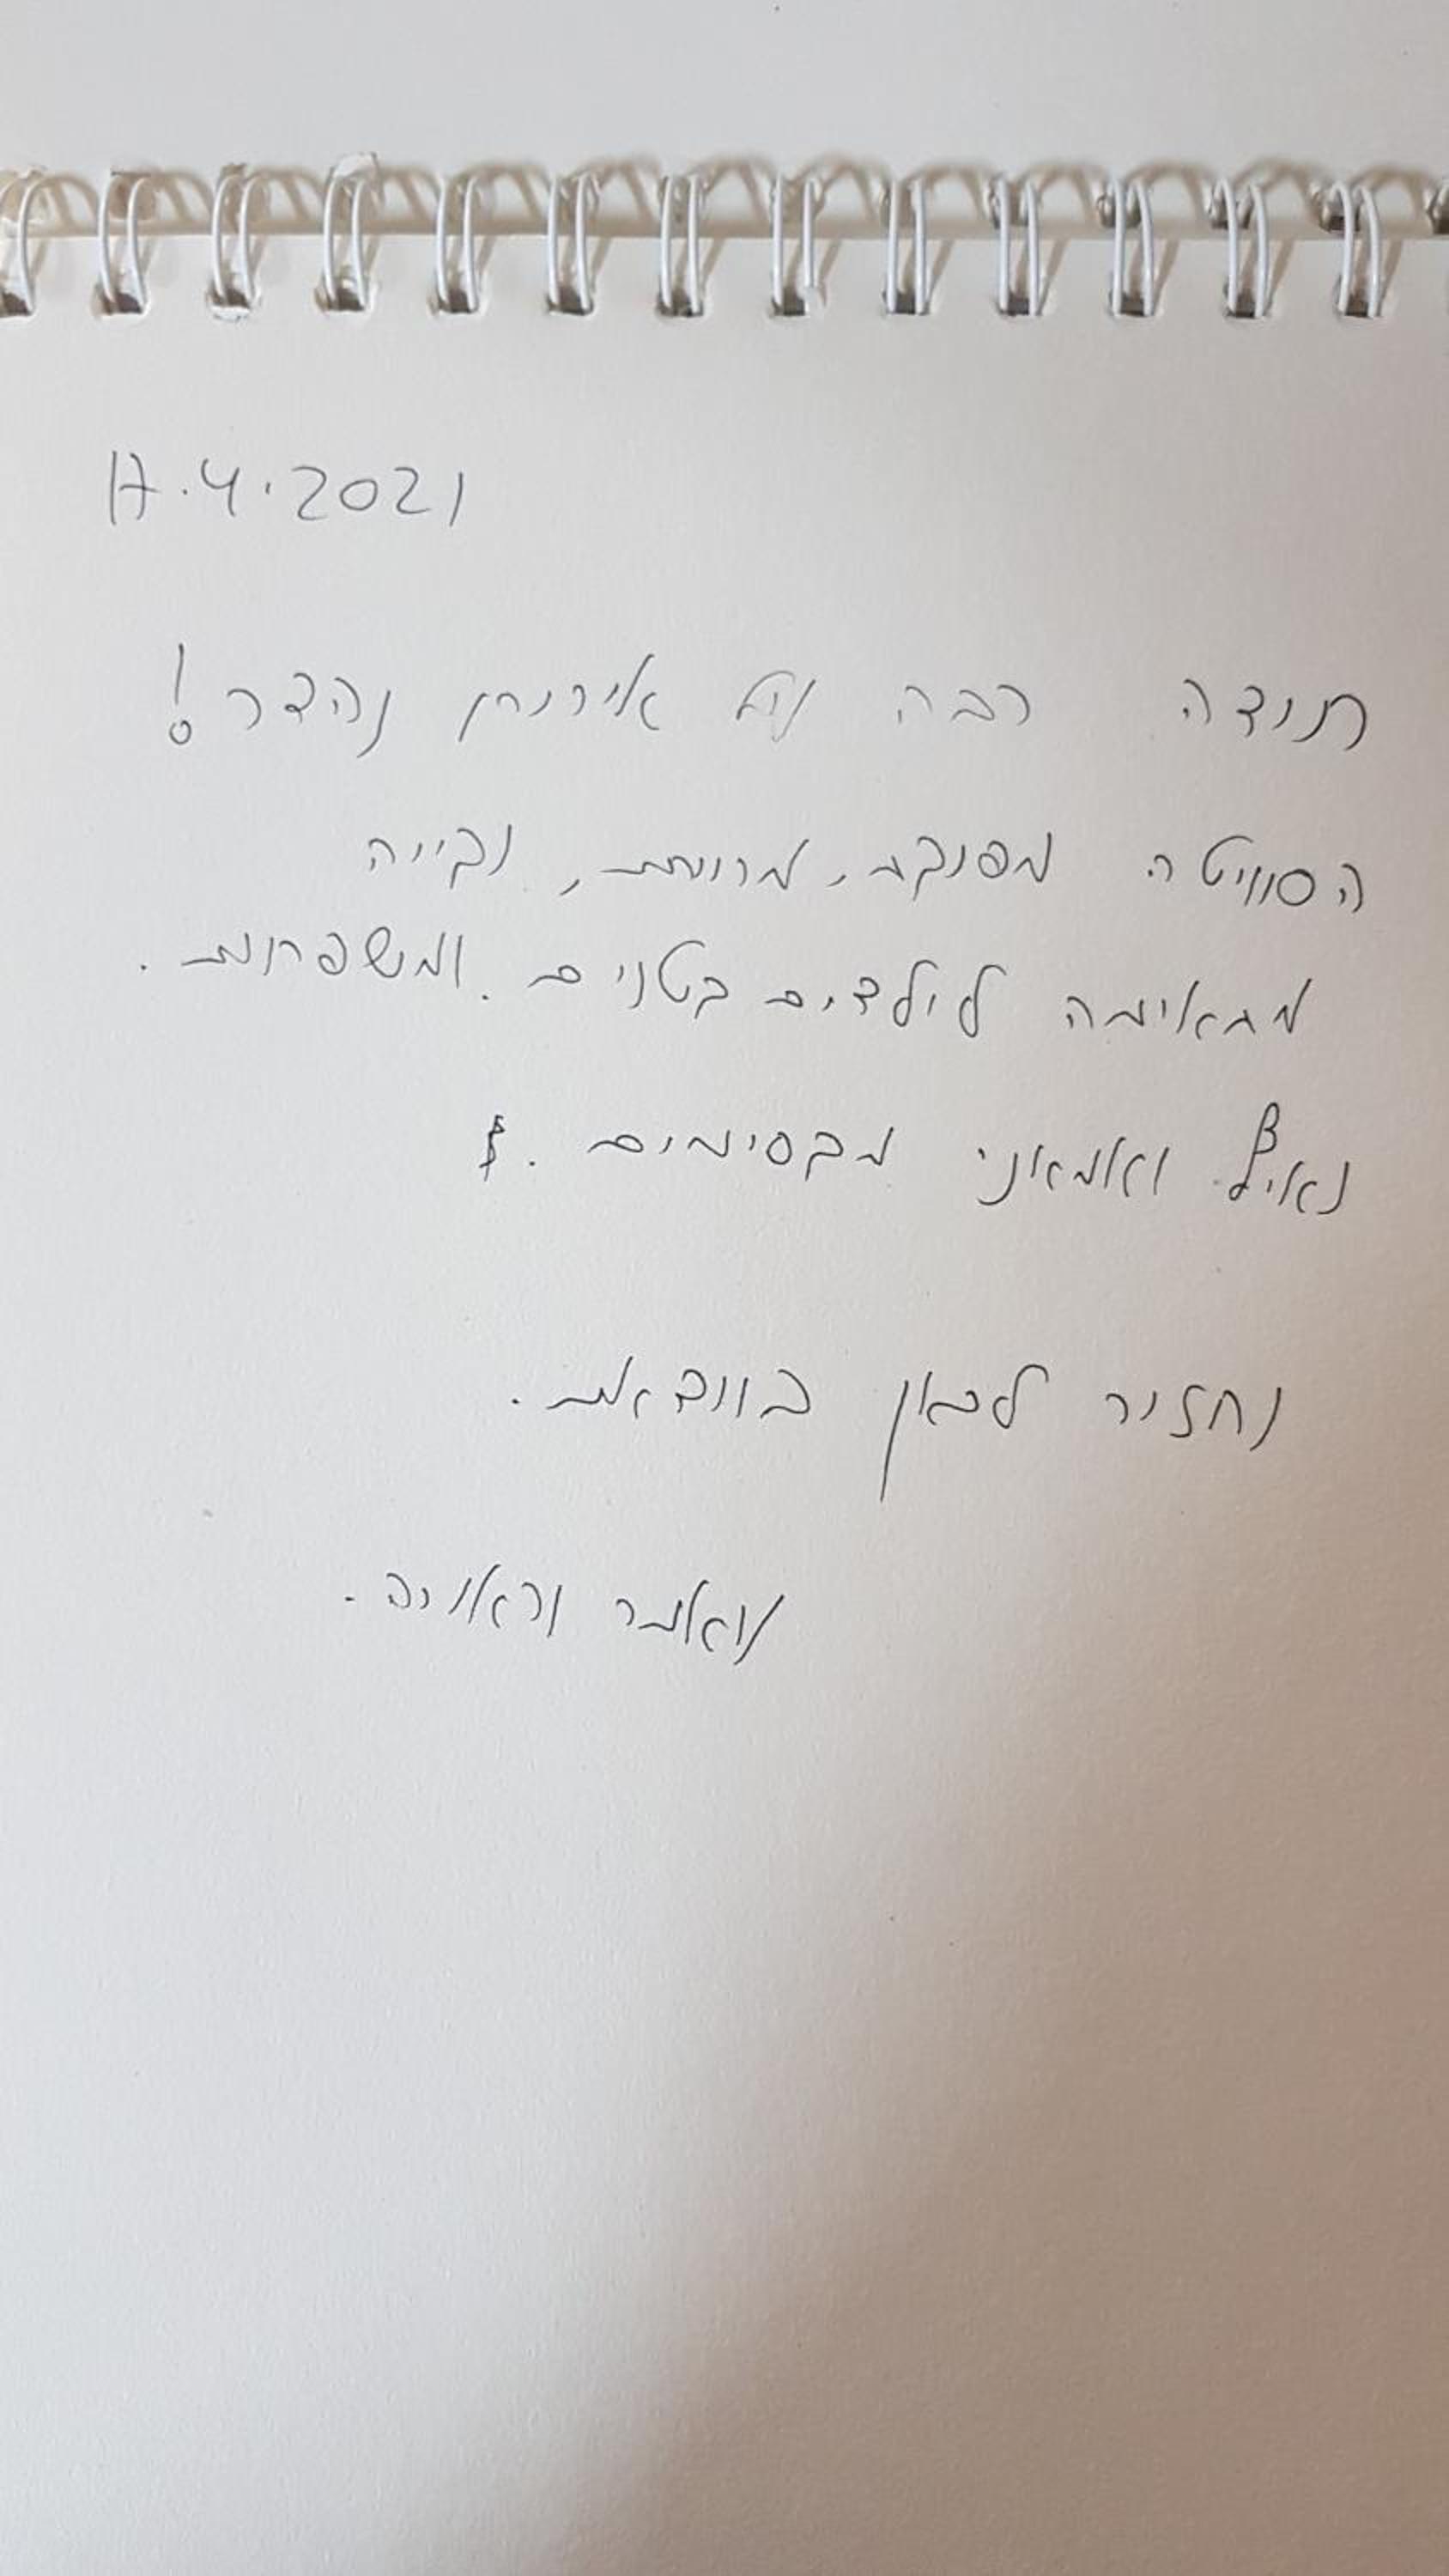 17.4.2021
תודה רבה על אירוח נהדר!
הסוויטה מפנקת, מרווחת, נקייה
מתאימה לילדים קטנים ומשפחות.
נאיף ואמאני מקסימים.
נחזור לכאן בוודאות.
ותאמר וראויה.